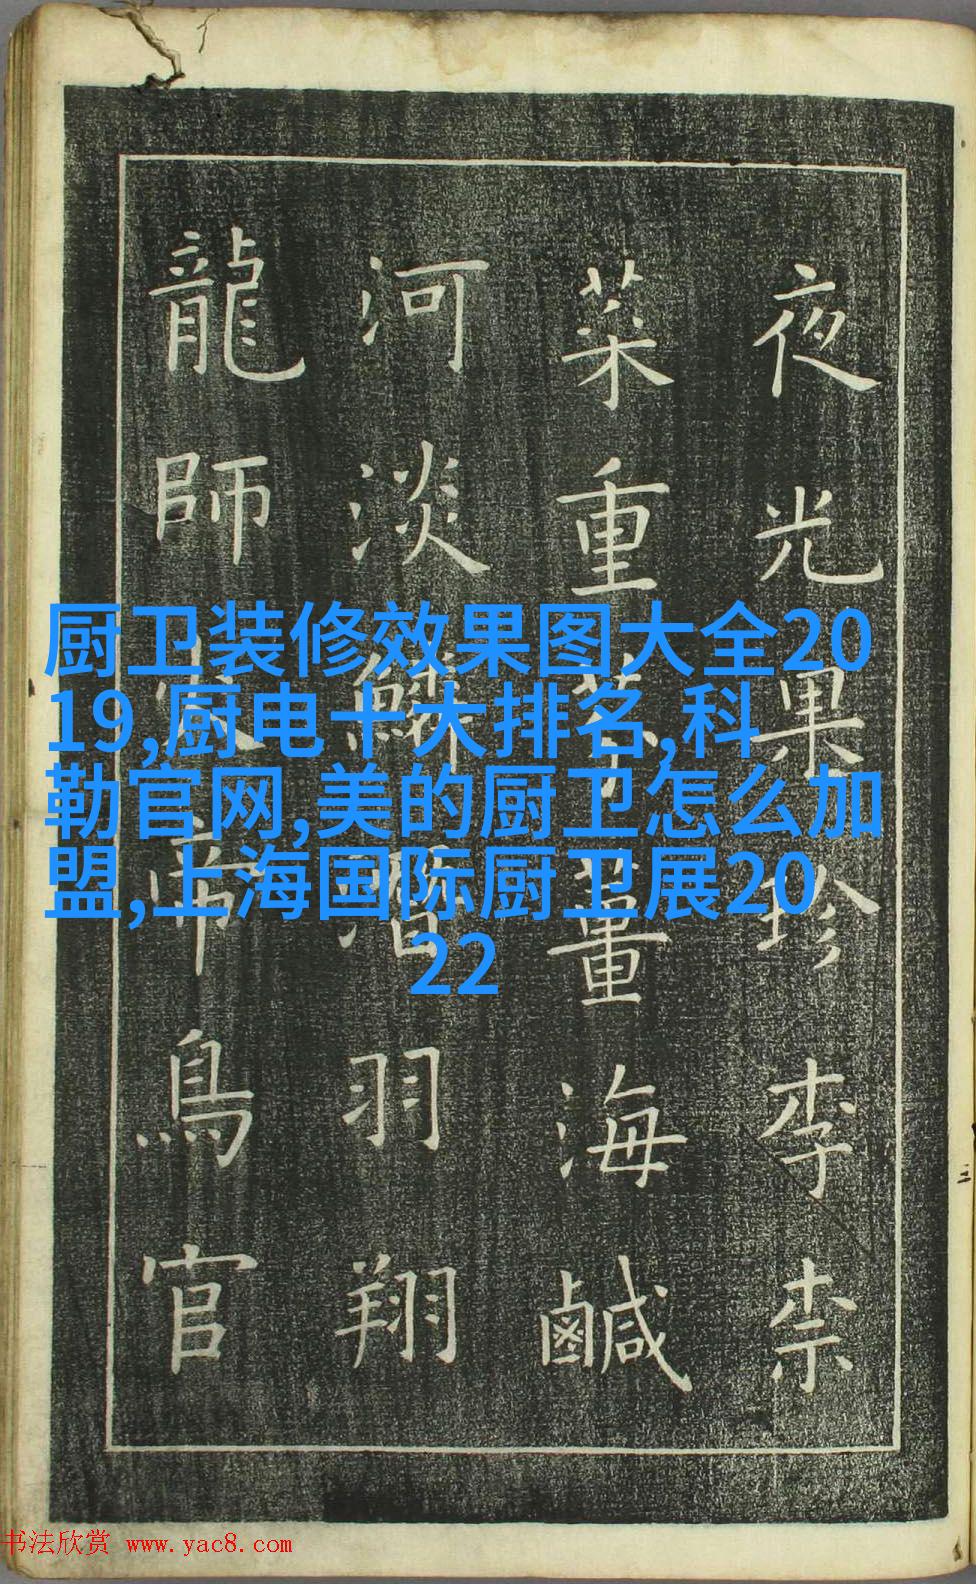 夜光果珍李柰
菜重芥薑海鹹
河淡鱗潛羽翔
龍師火帝鳥官
厨卫装修效果图大全20
19,厨电十大排名,科
勒官网,美的厨卫怎么加
盟,上海国际厨卫展20
22
书法欣赏 www.yac8.com